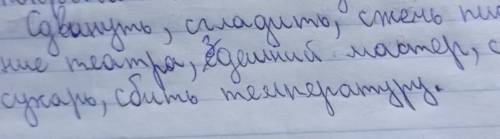 Сдвинуть, сгладить, степь
ние театра, Здешний мастер, с
сухарь, сбить температуру.